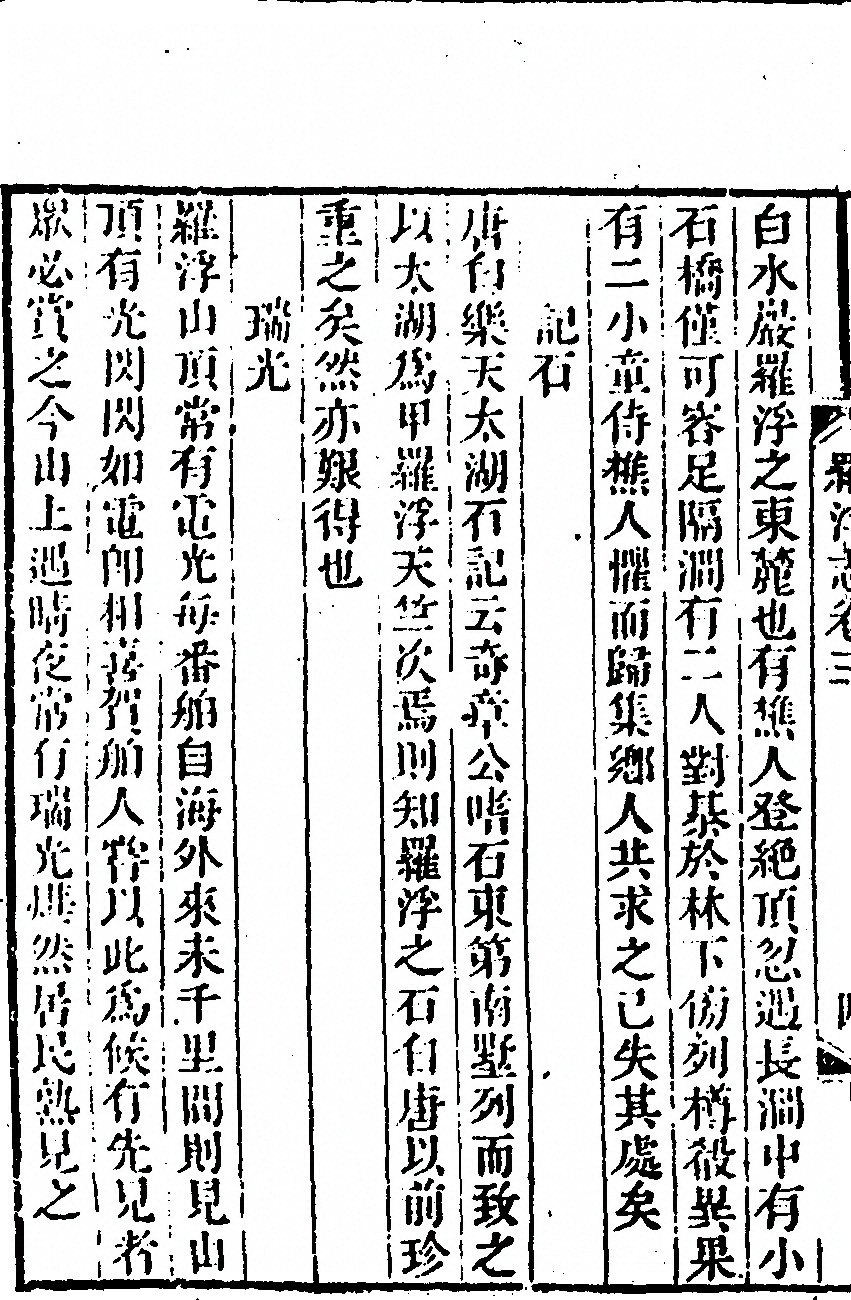 羅浮志卷三
白水巖羅浮之東麓也有樵人登絕頂忽遇長澗中有小
石橋僅可容足隔澗有二人對棊於林下傍列樽殽異果
有二小童侍樵人懼而歸集鄉人共求之已失其處矣
記石
唐白樂天太湖石記云奇章公嗜石東第南墅列而致之
以太湖爲甲羅浮天竺次焉則知羅浮之石自唐以前珍
重之矣然亦艱得也
瑞光
羅浮山頂常有電光每番舶自海外來未千里間則見山
頂有光閃閃如電卽相喜賀舶人嘗以此爲候有先見者
眾必賞之今山上遇晴夜常有瑞光燁然居民熟見之